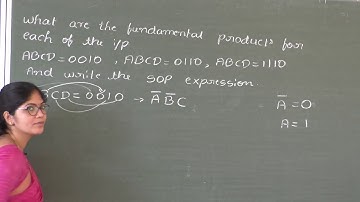 What are the fundamental products for
each of the i/p
ABCD = 0010 , ABCD = 0110 , ABCD = 1110
And write the SOP expression.
BCD = 0010 → A̅ B̅ C
A̅ = 0
A = 1